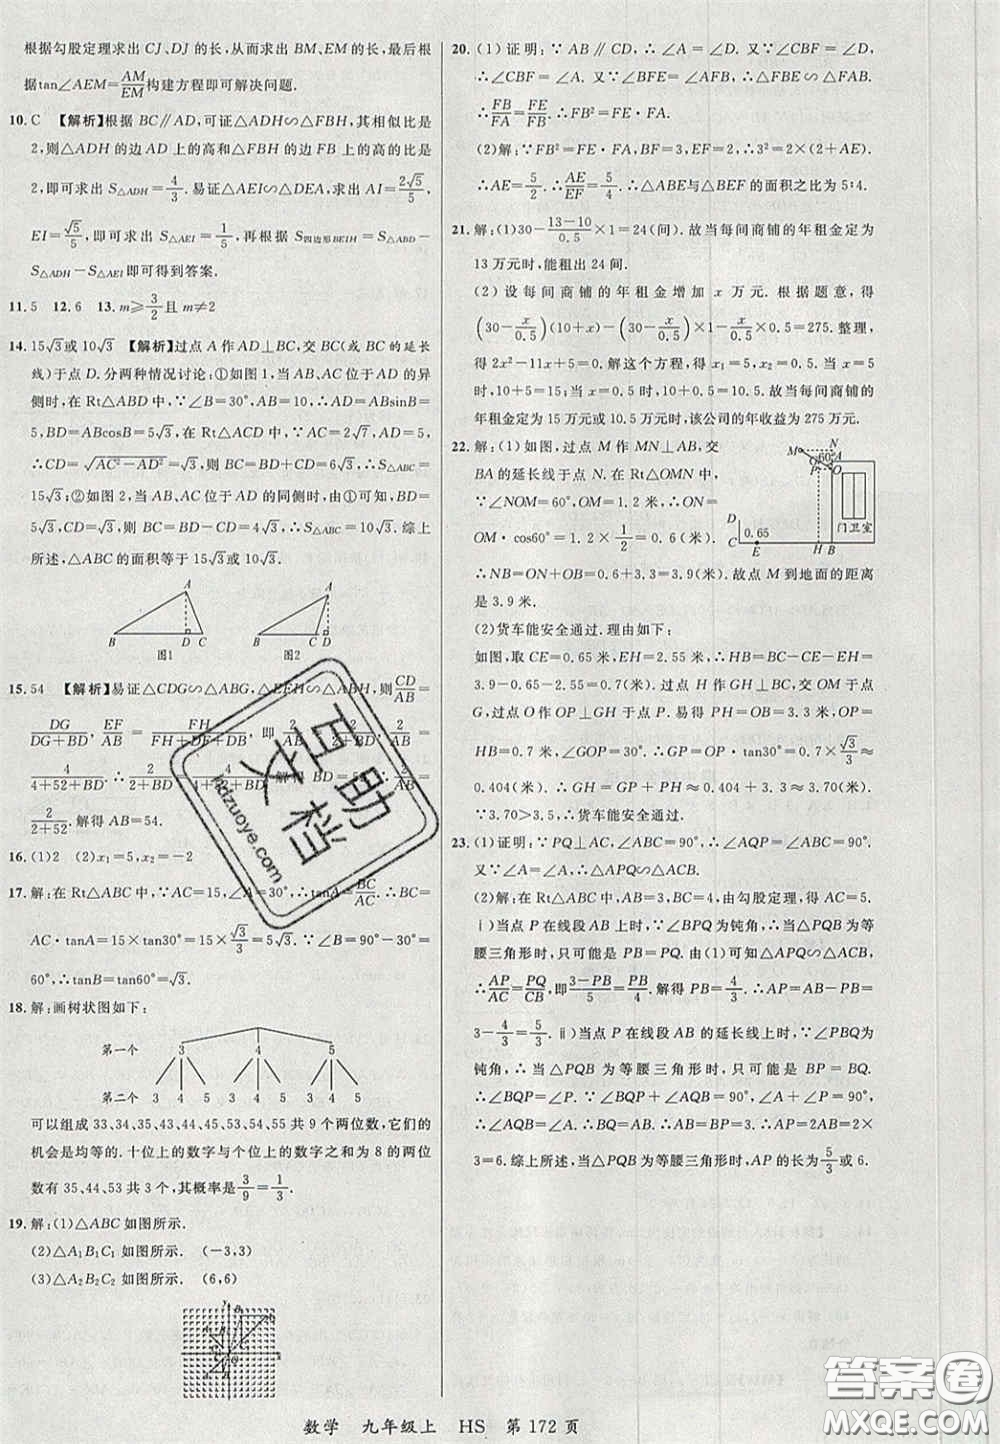 根据勾股定理求出 CJ、DJ 的长,从而求出 BM、EM 的长,最后根
据tan∠AEM=AM/EM构建方程即可解决问题.
10.C 【解析】根据 BC∥AD,可证△ADH∽△FBH,其相似比是
2,则△ADH 的边 AD 上的高和△FBH 的边 FB 上的高的比是
2,即可求出 S△ADH=4/3.易证△AEI∽△DEA,求出 AI=2√5/5,
EI=√5/5,即可求出 S△AEI=1/5,再根据 S四边形BEIH=S△ABD-
S△ADH-S△AEI即可得到答案.
11.5 12.6 13.m≥3/2且 m≠2
14.15√3或10√3 【解析】过点 A 作 AD⊥BC,交 BC(或 BC 的延长
线)于点 D.分两种情况讨论:①如图 1,当 AB、AC 位于 AD 的异
侧时,在 Rt△ABD 中,∵∠B=30°,AB=10,∴AD=ABsinB=
5,BD=ABcosB=5√3,在 Rt△ACD 中,∵AC=2√7,AD=5,
∴CD=√AC²-AD²=√3,∴BC=BD+CD=6√3,∴S△ABC=
15√3;②如图 2,当 AB、AC 在 AD 的同侧时,由①可知,BD=
5√3,CD=√3,∴BC=BD-CD=4√3,∴S△ABC=10√3.综上
所述,△ABC 的面积等于 15√3或 10√3.
A A
B D C B C D
图1 图2
15.54 【解析】易证△CDG∽△ABG,△EFH∽△ABH,则CD/AB=
DG/DG+BD,EF/AB=FH/FH+DF+BD,即2/AB=
4/4+52+BD,∴2/2+BD=4/4+52+BD.解得 BD=52,∴2/AB=
2/2+52.解得 AB=54.
16.(1)2 (2)x₁=5,x₂=-2
17.解:在 Rt△ABC 中,∵AC=15,∠A=30°,tanA=BC/AC.∴BC=
AC·tanA=15×tan30°=15×√3/3=5√3.∵∠B=90°-30°=
60°,∴tanB=tan60°=√3.
18.解:画树状图如下:
第一个 3 4 5
第二个 3 4 5 3 4 5 3 4 5
可以组成 33,34,35,43,44,45,53,54,55 共 9 个两位数,它们的
机会是均等的.十位上的数字与个位上的数字之和为 8 的两位
数有 35,44,53 共 3 个,其概率是3/9=1/3.
19.解:(1)△ABC 如图所示.
(2)△A₁B₁C₁ 如图所示. (-3,3)
(3)△A₂B₂C₂ 如图所示. (6,6)
20.(1)证明:∵ AB∥CD,∴∠A=∠D.又∵∠CBF=∠D,
∴∠CBF=∠A.又∵∠BFE=∠AFB,∴△FBE∽△FAB.
∴FB/FA=FE/FB.∴FB²=FE·FA.
(2)解:∵FB²=FE·FA,BF=3,EF=2,∴3²=2×(2+AE).
∴AE=5/2.∴AE/EF=5/4.∴△ABE与△BEF 的面积之比为 5:4.
21.解:(1)30-13-10/0.5×1=24(间).故当每间商铺的年租金定为
13 万元时,能租出 24 间.
(2)设每间商铺的年租金增加 x 万元.根据题意,得
(30-x/0.5)(10+x)-(30-x/0.5)×1-x/0.5×0.5=275.整理,
得 2x²-11x+5=0.解这个方程,得 x₁=5,x₂=0.5.当 x=5
时,10+5=15;当 x=0.5 时,10+0.5=10.5.故当每间商铺的
年租金定为 15 万元或 10.5 万元时,该公司的年收益为 275 万元.
22.解:(1)如图,过点 M 作 MN⊥AB,交
BA的延长线于点 N.在 Rt△OMN 中,
∵∠NOM=60°,OM=1.2 米,∴ON=
OM·cos60°=1.2×1/2=0.6(米).
∴NB=ON+OB=3.3+0.6=3.9(米).故点 M 到地面的距离
是 3.9 米.
N
M
60° A
P O
门卫室
D
0.65
C E H B
(2)货车能安全通过.理由如下:
如图,取 CE=0.65 米,EH=2.55 米.∴HB=BC-CE-EH=
3.9-0.65-2.55=0.7(米).过点 H 作 GH⊥BC,交 OM 于点
G,过点 O 作 OP⊥GH 于点 P.易得 PH=OB=3.3 米,OP=
HB=0.7米,∠GOP=30°.∴GP=OP·tan30°=0.7×√3/3≈
0.404(米).∴GH=GP+PH≈0.404+3.3≈3.70(米).
∵3.70>3.5,∴货车能安全通过.
23.(1)证明:∵PQ⊥AC,∠ABC=90°,∴∠AQP=∠ABC=90°.
又∵∠A=∠A,∴△AQP∽△ABC.
(2)解:在 Rt△ABC 中,AB=3,BC=4,由勾股定理,得 AC=5.
ⅰ)当点 P 在线段 AB 上时,∵∠BPQ 为钝角,∴当△PQB 为等
腰三角形时,只可能是 PB=PQ.由(1)可知△AQP∽△ABC,
∴AP/AC=PQ/CB,即3-PB/5=PB/4.解得 PB=4/3,∴AP=AB-PB=
3-4/3=5/3.ⅱ)当点 P 在线段 AB 的延长线上时,∵∠PBQ 为
钝角,∴当△PQB 为等腰三角形时,只可能 BP=BQ.
∴∠BQP=∠P.∵∠BQP+∠AQB=90°,∠A+∠P=90°,
∴∠AQB=∠A.∴BQ=AB.∴AB=BP.∴AP=2AB=2×
3=6.综上所述,当△PQB 为等腰三角形时,AP 的长为5/3或 6.
数学 九年级上 HS 第 172 页
百助文档
hdzuoye.com
答案圈
MXQE.COM